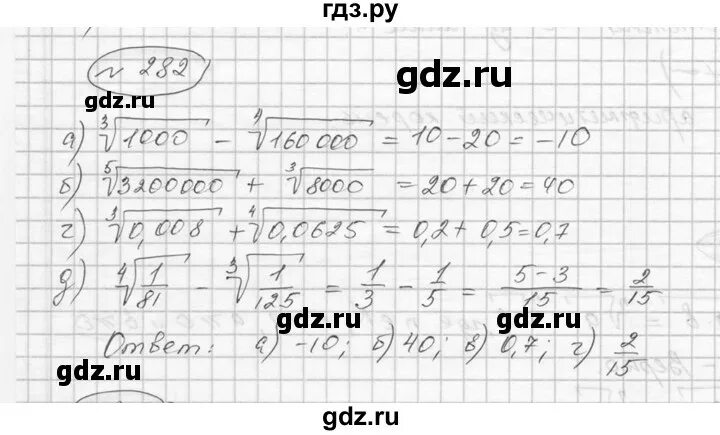 гдз.ру
№ 282
gdz.ru
а) ∛1000 − ∜160000 = 10 − 20 = −10
б) ⁵√3200000 + ∛8000 = 20 + 20 = 40
г) ∛0,008 + ∜0,0625 = 0,2 + 0,5 = 0,7
д) ∜(1/81) − ∛(1/125) = 1/3 − 1/5 = (5−3)/15 = 2/15
gdz.ru
gdz.ru
Ответ: а) −10; б) 40; в) 0,7; г) 2/15
gdz.ru
gdz.ru